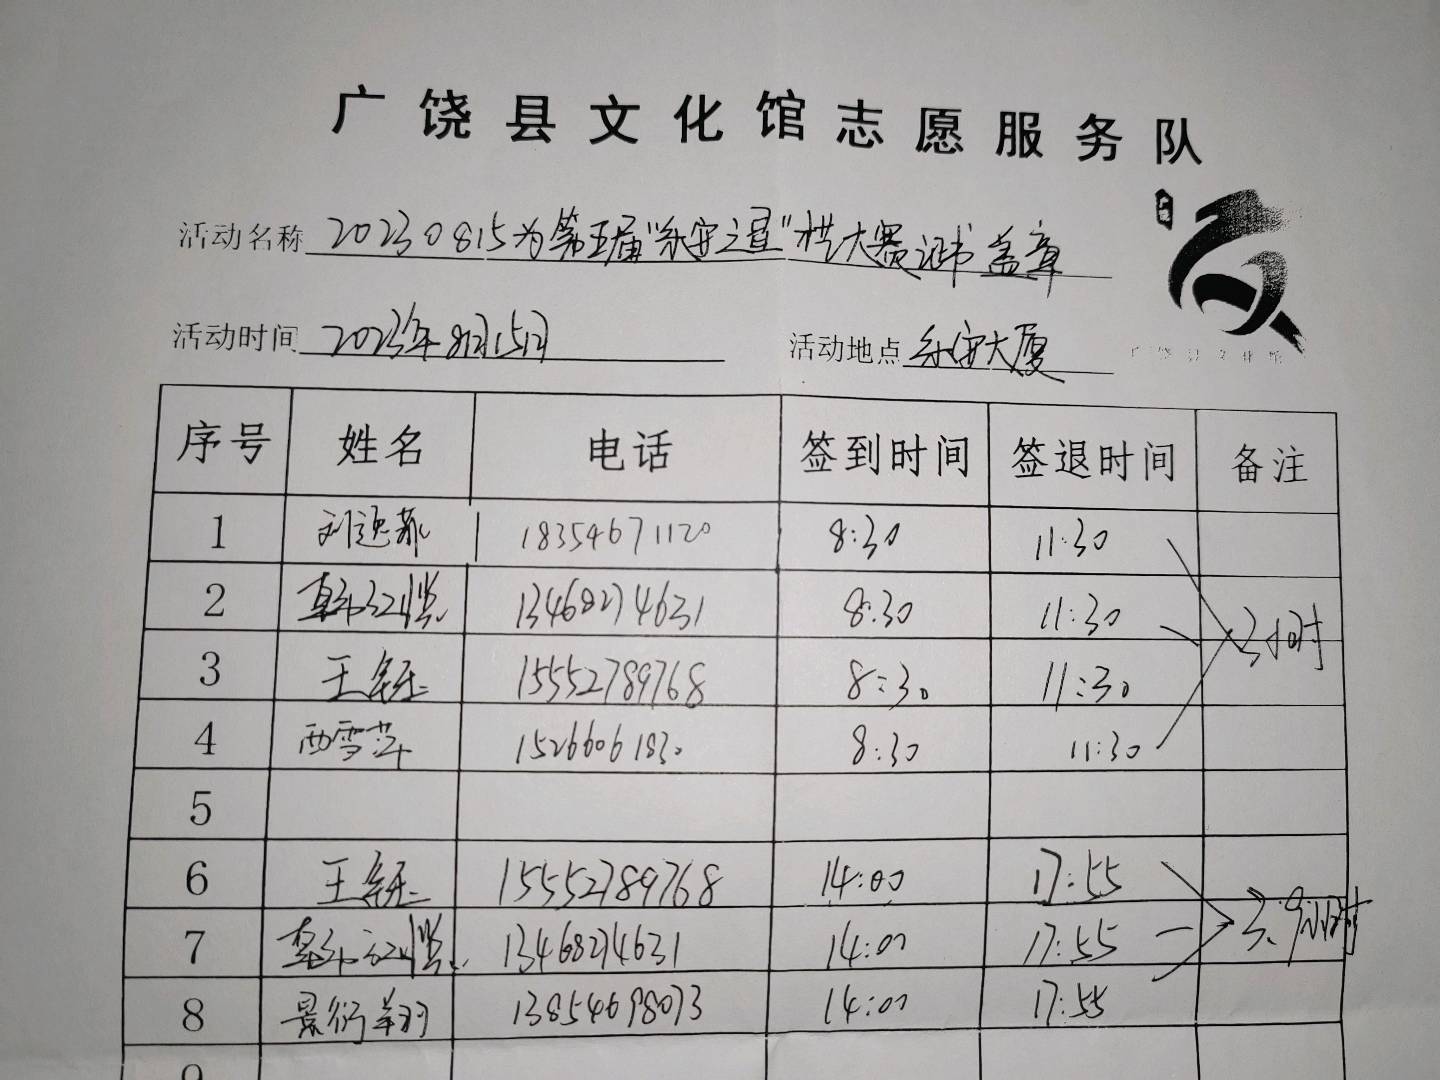 广饶县文化馆志愿服务队
活动名称 20230815为第五届“永安之星”棋大赛证书盖章
活动时间 2023年8月15日 活动地点 永安大厦
广饶县文化馆
序号 姓名 电话 签到时间 签退时间 备注
1 刘逸菲 18354671120 8:30 11:30
2 13468274631 8:30 11:30 3小时
3 王钰 15552789768 8:30 11:30
4 西雪萍 15266061830 8:30 11:30
5
6 王钰 15552789768 14:00 17:55
7 13468274631 14:00 17:55 3.9小时
8 景衍翔 13854698073 14:00 17:55
9